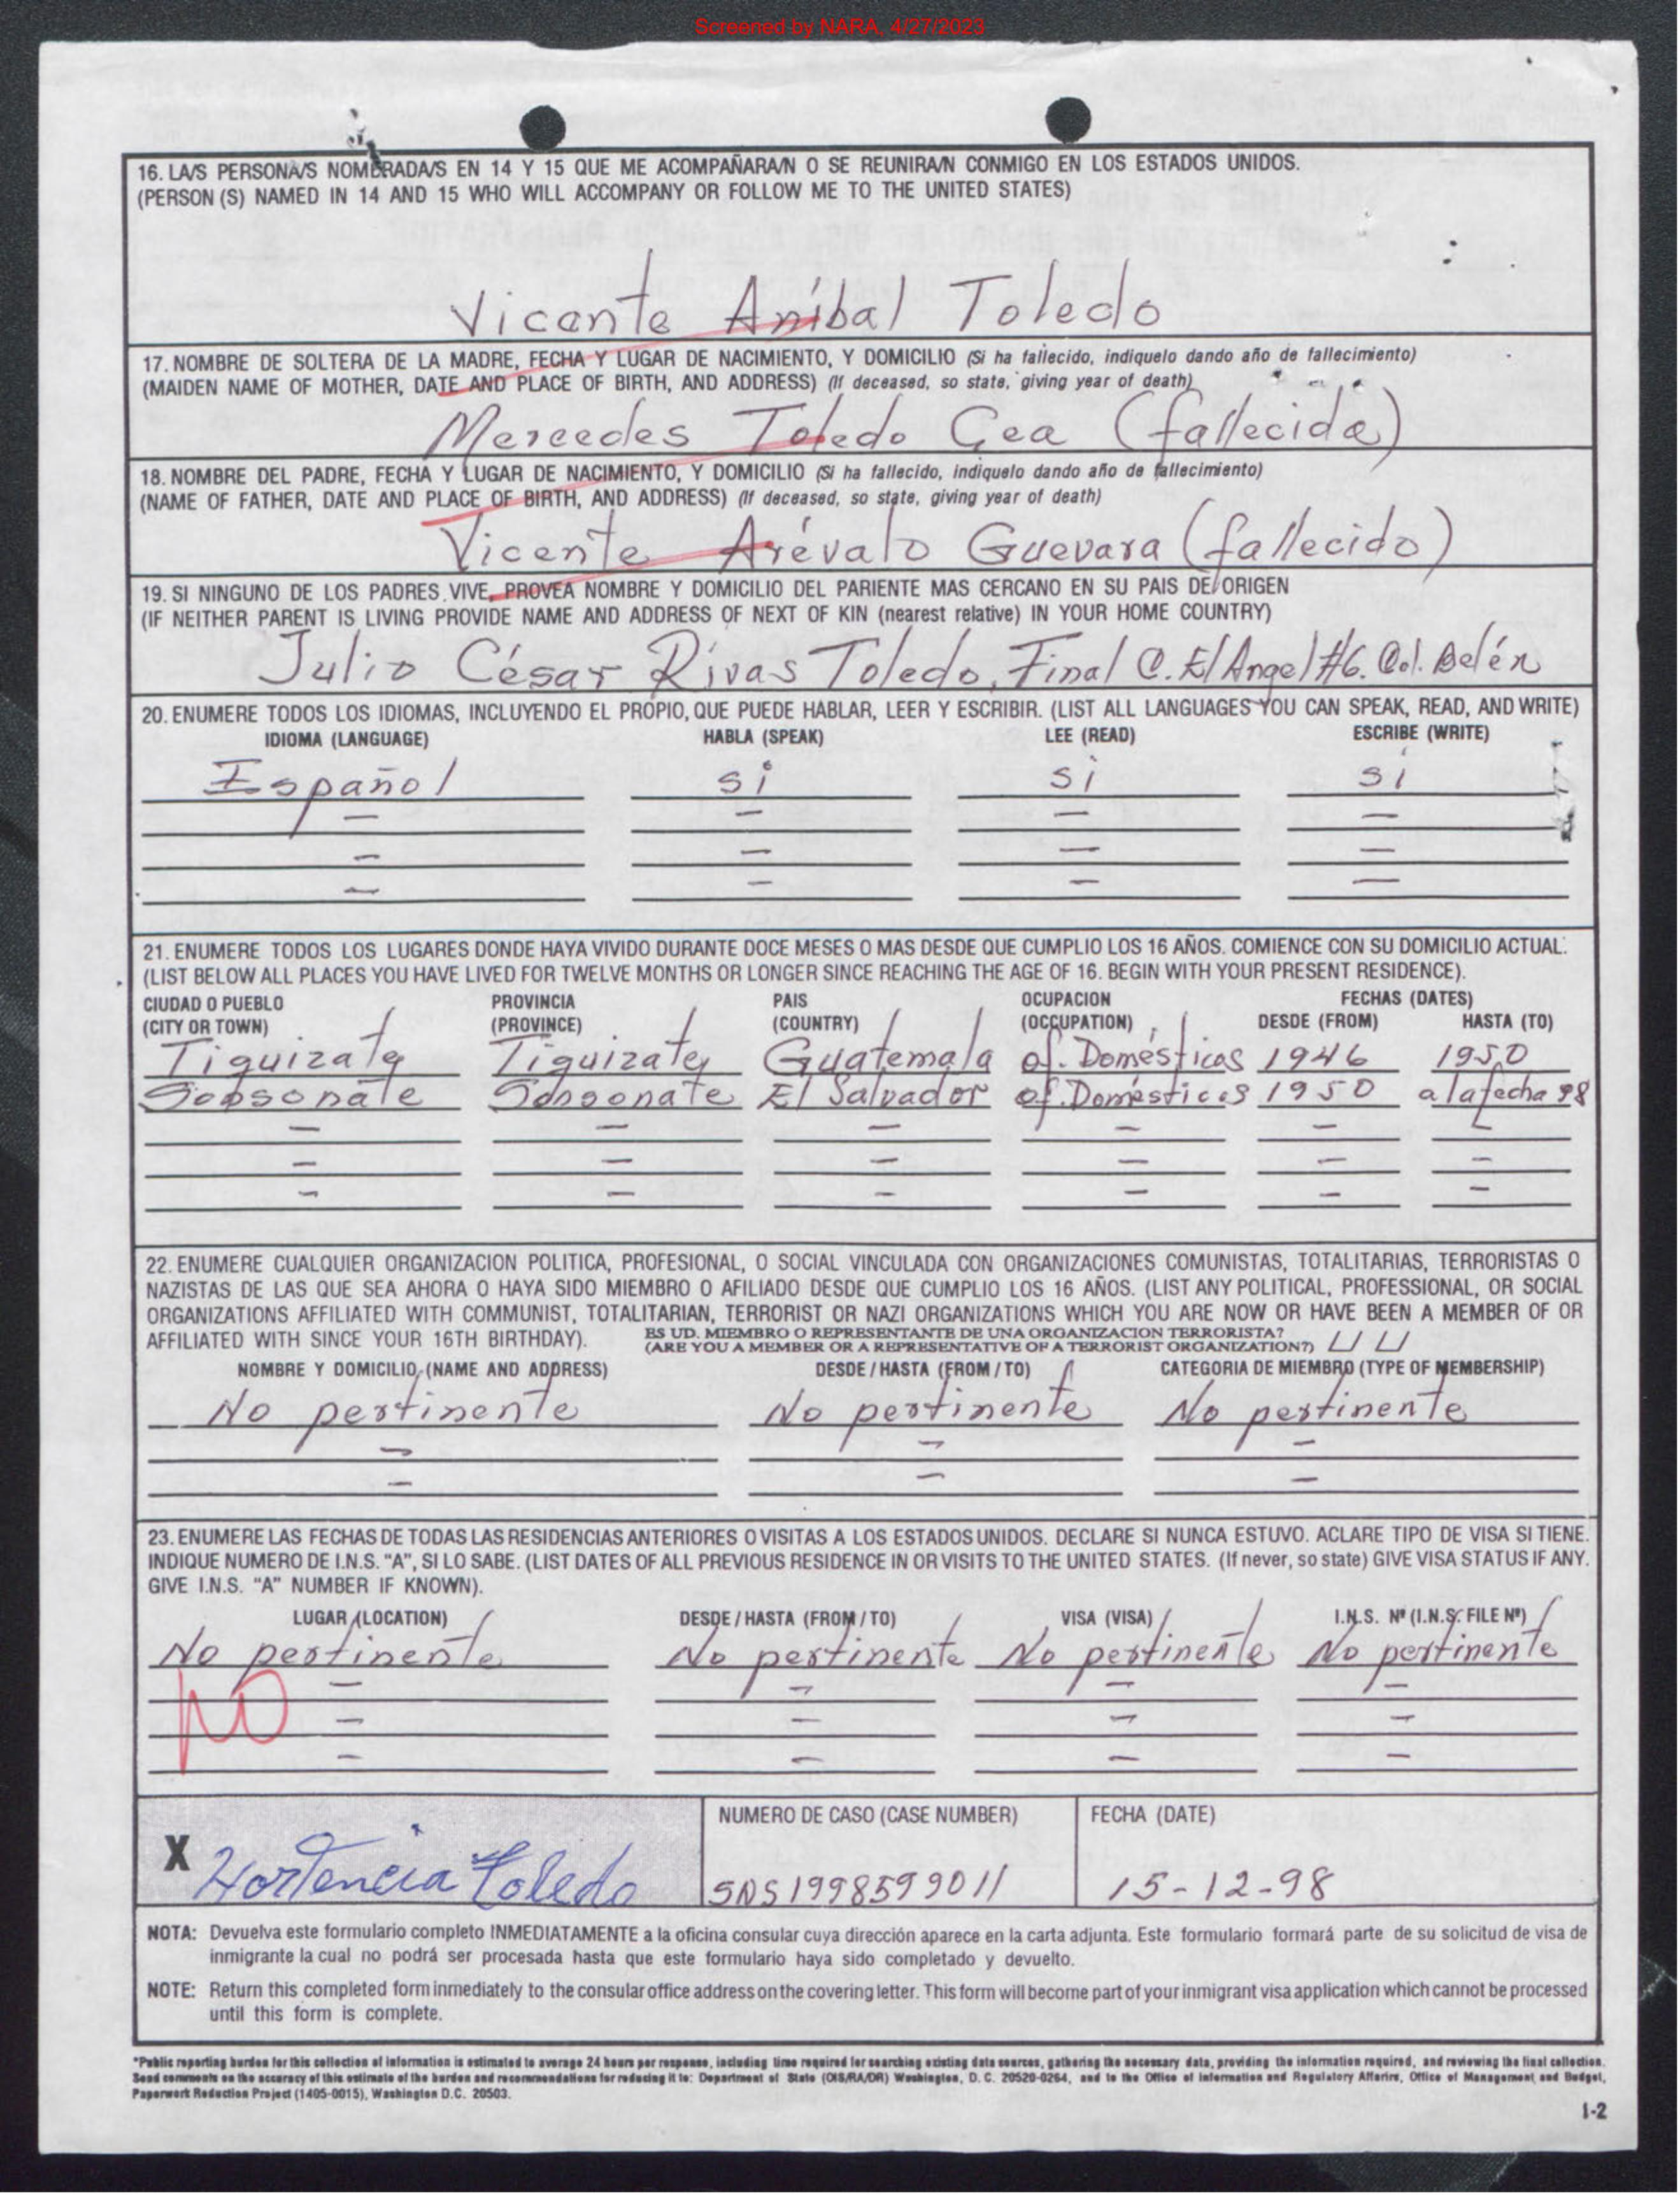 Screened by NARA, 4/27/2023
16. LA/S PERSONA/S NOMBRADA/S EN 14 Y 15 QUE ME ACOMPAÑARA/N O SE REUNIRA/N CONMIGO EN LOS ESTADOS UNIDOS.
(PERSON (S) NAMED IN 14 AND 15 WHO WILL ACCOMPANY OR FOLLOW ME TO THE UNITED STATES)
Vicente Aníbal Toledo
17. NOMBRE DE SOLTERA DE LA MADRE, FECHA Y LUGAR DE NACIMIENTO, Y DOMICILIO (Si ha fallecido, indiquelo dando año de fallecimiento)
(MAIDEN NAME OF MOTHER, DATE AND PLACE OF BIRTH, AND ADDRESS) (If deceased, so state, giving year of death)
Mercedes Toledo Cea (fallecida)
18. NOMBRE DEL PADRE, FECHA Y LUGAR DE NACIMIENTO, Y DOMICILIO (Si ha fallecido, indiquelo dando año de fallecimiento)
(NAME OF FATHER, DATE AND PLACE OF BIRTH, AND ADDRESS) (If deceased, so state, giving year of death)
Vicente Arévalo Guevara (fallecido)
19. SI NINGUNO DE LOS PADRES VIVE, PROVEA NOMBRE Y DOMICILIO DEL PARIENTE MAS CERCANO EN SU PAIS DE ORIGEN
(IF NEITHER PARENT IS LIVING PROVIDE NAME AND ADDRESS OF NEXT OF KIN (nearest relative) IN YOUR HOME COUNTRY)
Julio César Rivas Toledo, Final C. El Angel #6. Col. Belén
20. ENUMERE TODOS LOS IDIOMAS, INCLUYENDO EL PROPIO, QUE PUEDE HABLAR, LEER Y ESCRIBIR. (LIST ALL LANGUAGES YOU CAN SPEAK, READ, AND WRITE)
IDIOMA (LANGUAGE) HABLA (SPEAK) LEE (READ) ESCRIBE (WRITE)
Español si si si
– – – –
– – – –
– – – –
21. ENUMERE TODOS LOS LUGARES DONDE HAYA VIVIDO DURANTE DOCE MESES O MAS DESDE QUE CUMPLIO LOS 16 AÑOS. COMIENCE CON SU DOMICILIO ACTUAL.
(LIST BELOW ALL PLACES YOU HAVE LIVED FOR TWELVE MONTHS OR LONGER SINCE REACHING THE AGE OF 16. BEGIN WITH YOUR PRESENT RESIDENCE).
CIUDAD O PUEBLO PROVINCIA PAIS OCUPACION FECHAS (DATES)
(CITY OR TOWN) (PROVINCE) (COUNTRY) (OCCUPATION) DESDE (FROM) HASTA (TO)
Tiquizate Tiquizate Guatemala of. Domésticos 1946 1950
Sonsonate Sonsonate El Salvador of. Domésticos 1950 a la fecha 98
– – – – – –
– – – – – –
– – – – – –
22. ENUMERE CUALQUIER ORGANIZACION POLITICA, PROFESIONAL, O SOCIAL VINCULADA CON ORGANIZACIONES COMUNISTAS, TOTALITARIAS, TERRORISTAS O
NAZISTAS DE LAS QUE SEA AHORA O HAYA SIDO MIEMBRO O AFILIADO DESDE QUE CUMPLIO LOS 16 AÑOS. (LIST ANY POLITICAL, PROFESSIONAL, OR SOCIAL
ORGANIZATIONS AFFILIATED WITH COMMUNIST, TOTALITARIAN, TERRORIST OR NAZI ORGANIZATIONS WHICH YOU ARE NOW OR HAVE BEEN A MEMBER OF OR
AFFILIATED WITH SINCE YOUR 16TH BIRTHDAY). ES UD. MIEMBRO O REPRESENTANTE DE UNA ORGANIZACION TERRORISTA?
(ARE YOU A MEMBER OR A REPRESENTATIVE OF A TERRORIST ORGANIZATION?)
NOMBRE Y DOMICILIO (NAME AND ADDRESS) DESDE / HASTA (FROM / TO) CATEGORIA DE MIEMBRO (TYPE OF MEMBERSHIP)
No pertinente No pertinente No pertinente
– – –
– – –
23. ENUMERE LAS FECHAS DE TODAS LAS RESIDENCIAS ANTERIORES O VISITAS A LOS ESTADOS UNIDOS. DECLARE SI NUNCA ESTUVO. ACLARE TIPO DE VISA SI TIENE.
INDIQUE NUMERO DE I.N.S. "A", SI LO SABE. (LIST DATES OF ALL PREVIOUS RESIDENCE IN OR VISITS TO THE UNITED STATES. (If never, so state) GIVE VISA STATUS IF ANY.
GIVE I.N.S. "A" NUMBER IF KNOWN).
LUGAR (LOCATION) DESDE / HASTA (FROM / TO) VISA (VISA) I.N.S. Nº (I.N.S. FILE Nº)
No pertinente No pertinente No pertinente No pertinente
– – – –
NO – – – –
– – – –
NUMERO DE CASO (CASE NUMBER) FECHA (DATE)
X Hortencia Toledo SNS1998599011 15-12-98
NOTA: Devuelva este formulario completo INMEDIATAMENTE a la oficina consular cuya dirección aparece en la carta adjunta. Este formulario formará parte de su solicitud de visa de
inmigrante la cual no podrá ser procesada hasta que este formulario haya sido completado y devuelto.
NOTE: Return this completed form inmediately to the consular office address on the covering letter. This form will become part of your inmigrant visa application which cannot be processed
until this form is complete.
*Public reporting burden for this collection of information is estimated to average 24 hours per response, including time required for searching existing data sources, gathering the necessary data, providing the information required, and reviewing the final collection.
Send comments on the accuracy of this estimate of the burden and recommendations for reducing it to: Department of State (OIS/RA/DR) Washington, D.C. 20520-0264, and to the Office of Information and Regulatory Affairs, Office of Management and Budget,
Paperwork Reduction Project (1405-0015), Washington D.C. 20503.
1-2